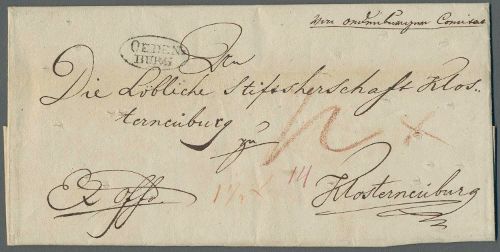 Von Oedenburger Comitat
OEDEN
BURG
An
Die Löbliche Stiftsherschaft Klos=
terneuburg
zu
Ex offo.
14
Klosterneuburg